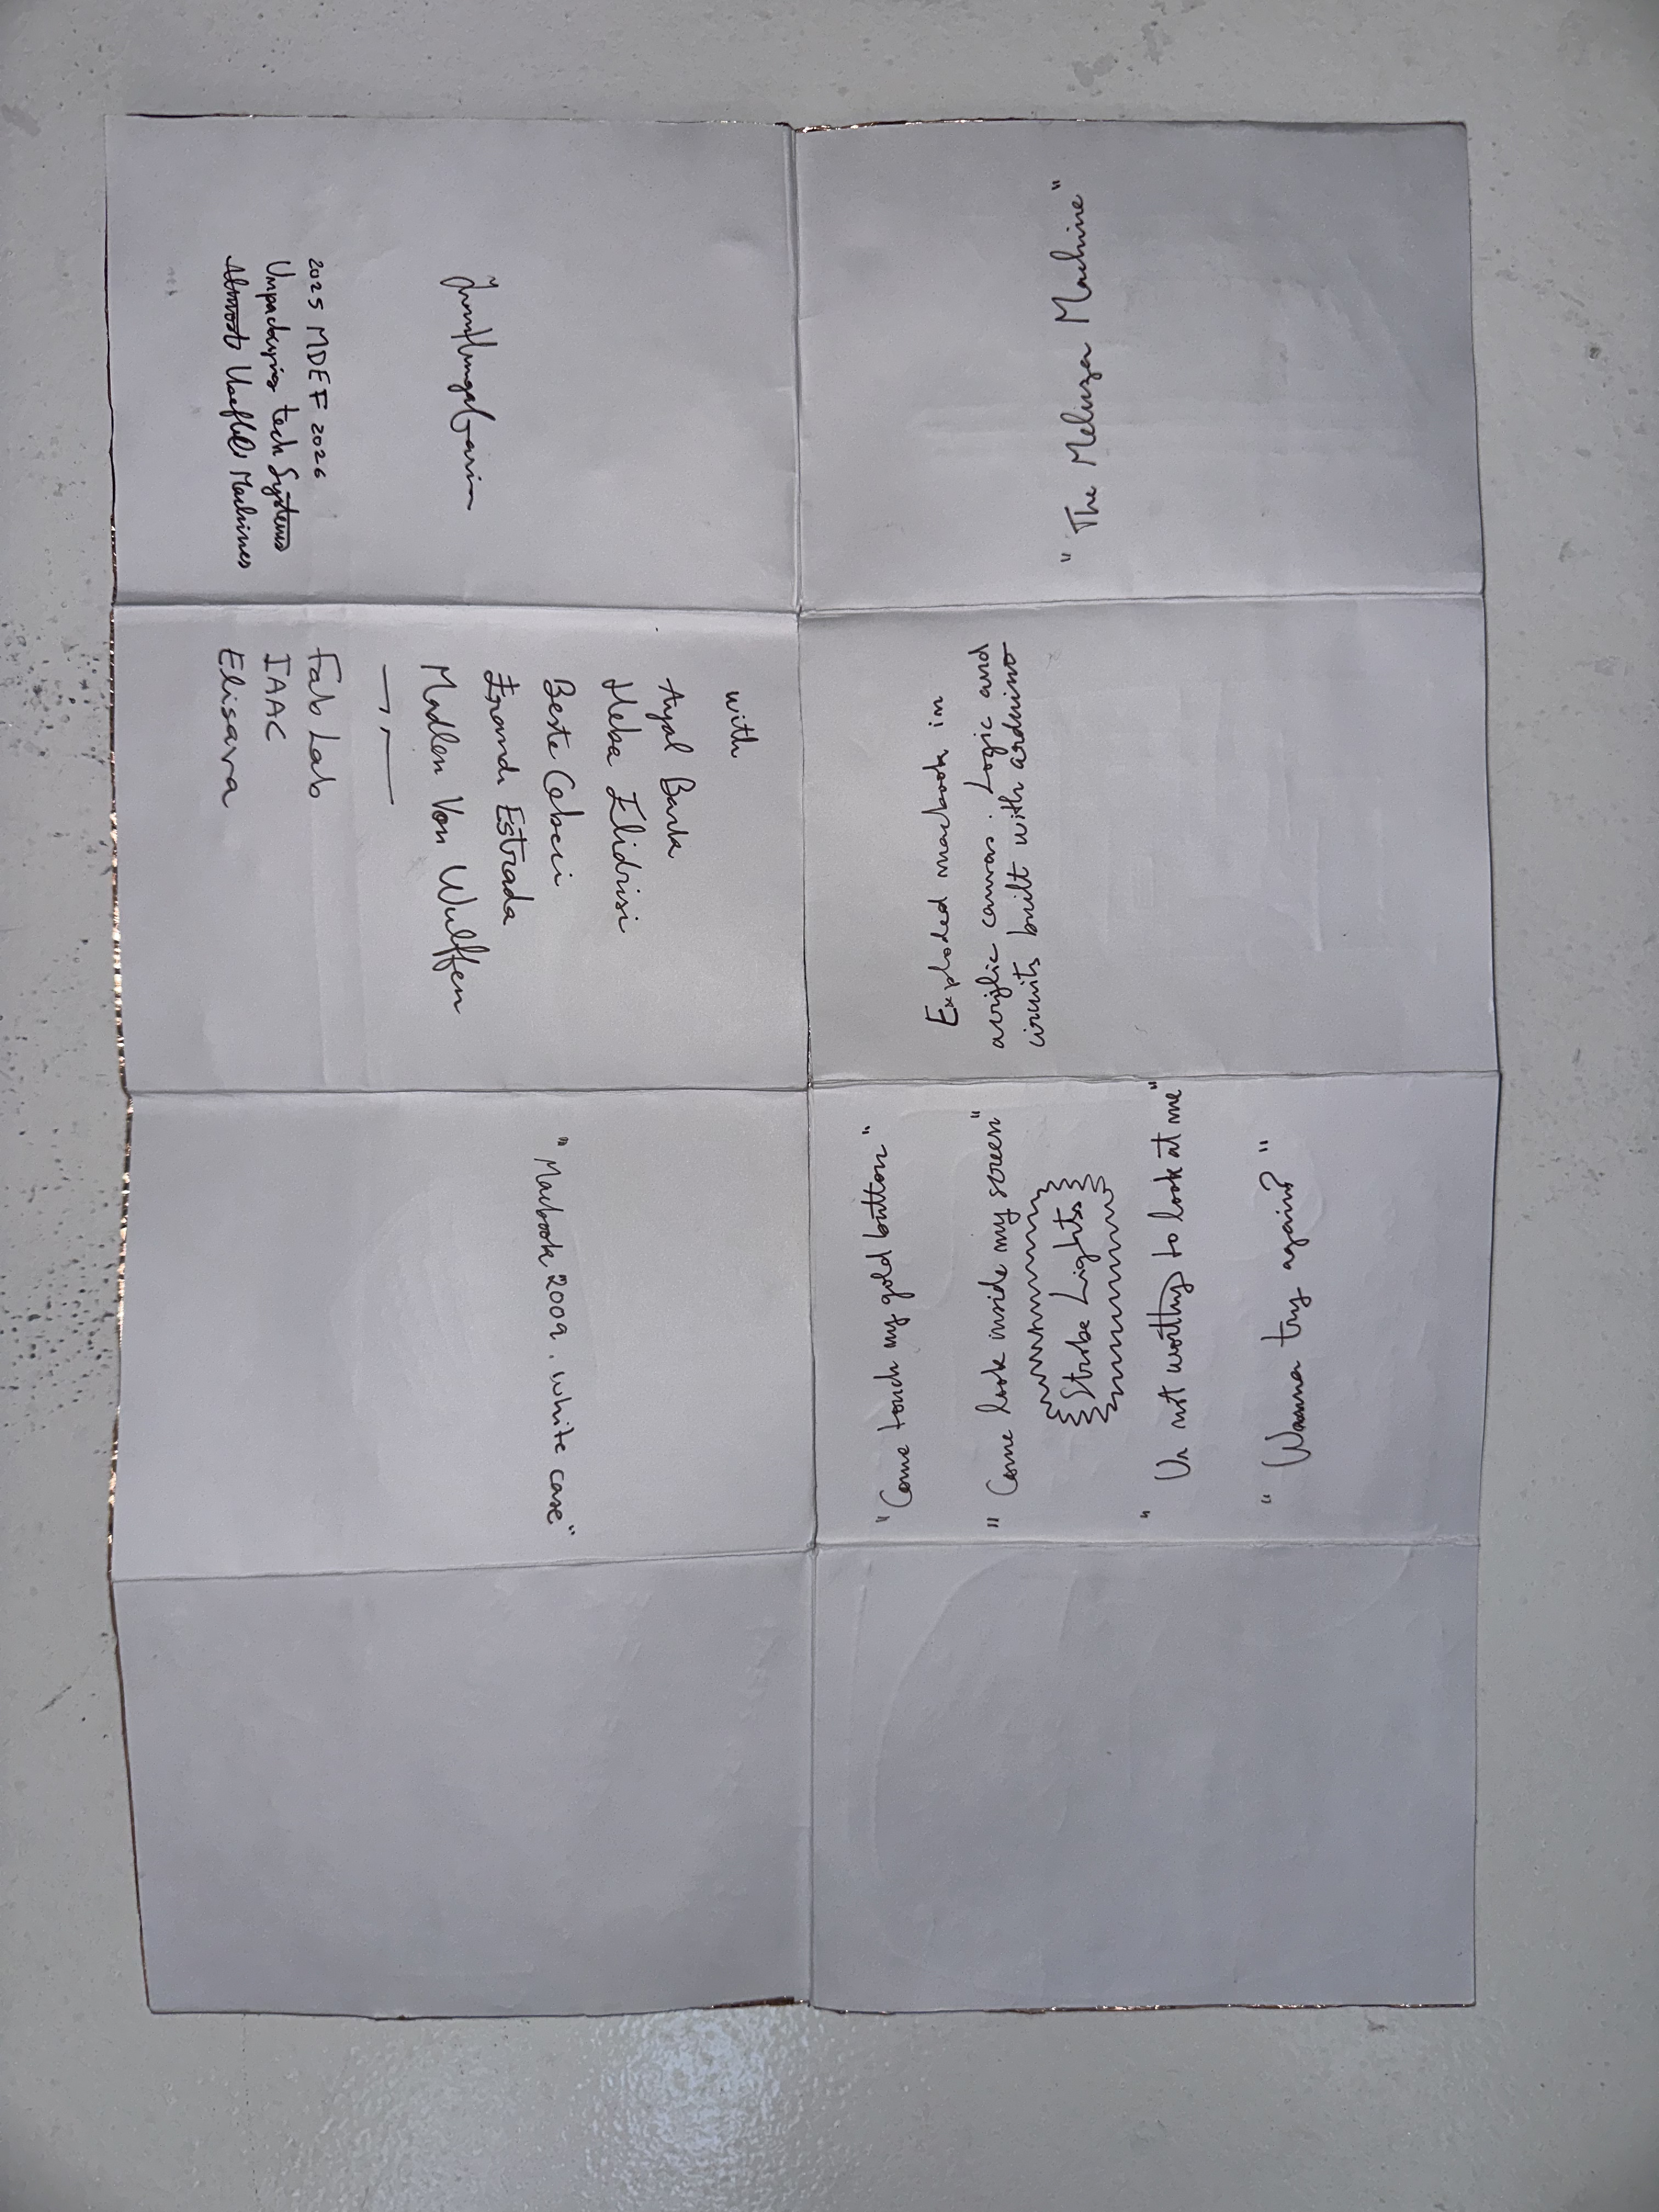 "The Meluza Machine"
Exploded macbook in
acrylic canvas. Logic and
circuits built with arduino
"Come touch my gold button"
"Come look inside my screen"
Strobe Lights
"Ur not worthy to look at me"
"Wanna try again?"
"Macbook 2009. white case"
with
Anjal
Heba Elidrisi
Beste
Estrada
Madlen Von Wulffen
Fab Lab
IAAC
Elisava
2025 MDEF 2026
Unpacking tech Systems
Almost Useful Machines